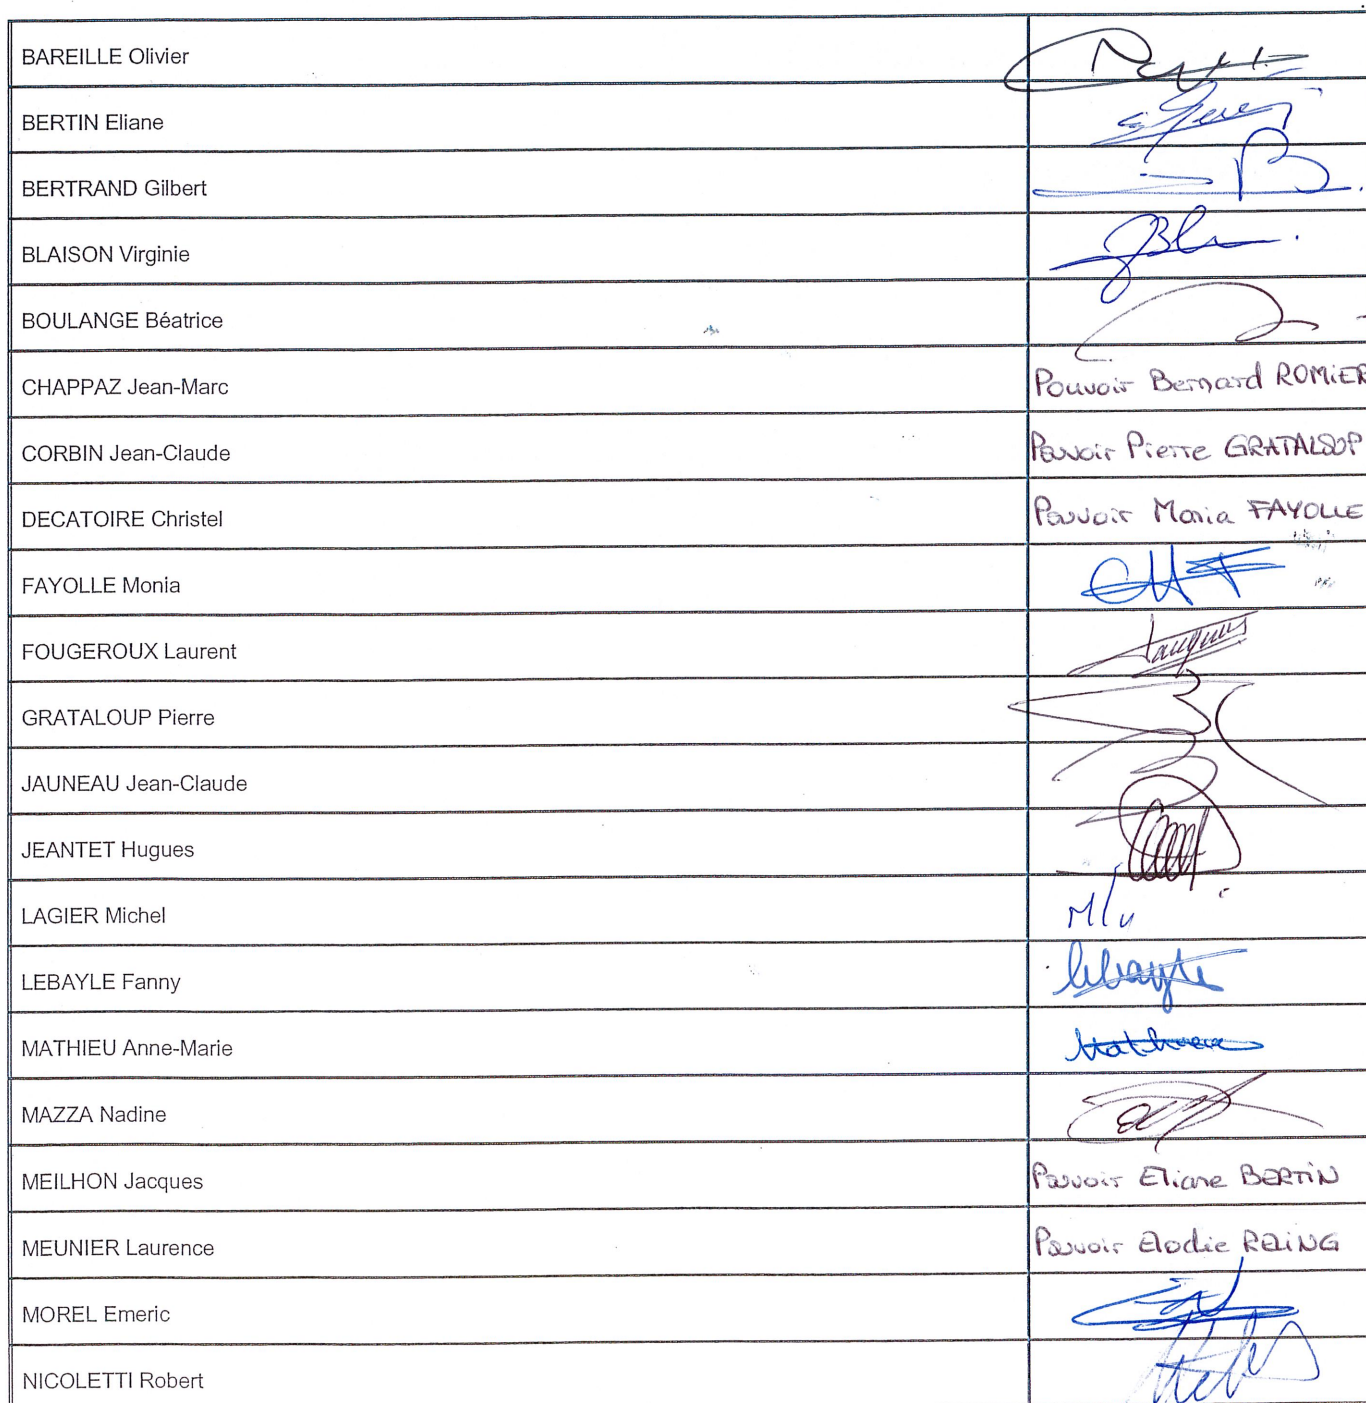 BAREILLE Olivier
BERTIN Eliane
BERTRAND Gilbert
BLAISON Virginie
BOULANGE Béatrice
CHAPPAZ Jean-Marc Pouvoir Bernard ROMiER
CORBIN Jean-Claude Pouvoir Pierre GRATALOUP
DECATOIRE Christel Pouvoir Monia FAYOLLE
FAYOLLE Monia
FOUGEROUX Laurent
GRATALOUP Pierre
JAUNEAU Jean-Claude
JEANTET Hugues
LAGIER Michel
LEBAYLE Fanny lebayle
MATHIEU Anne-Marie Mathieu
MAZZA Nadine
MEILHON Jacques Pouvoir Eliane BERTiN
MEUNIER Laurence Pouvoir Elodie RELiNG
MOREL Emeric
NICOLETTI Robert